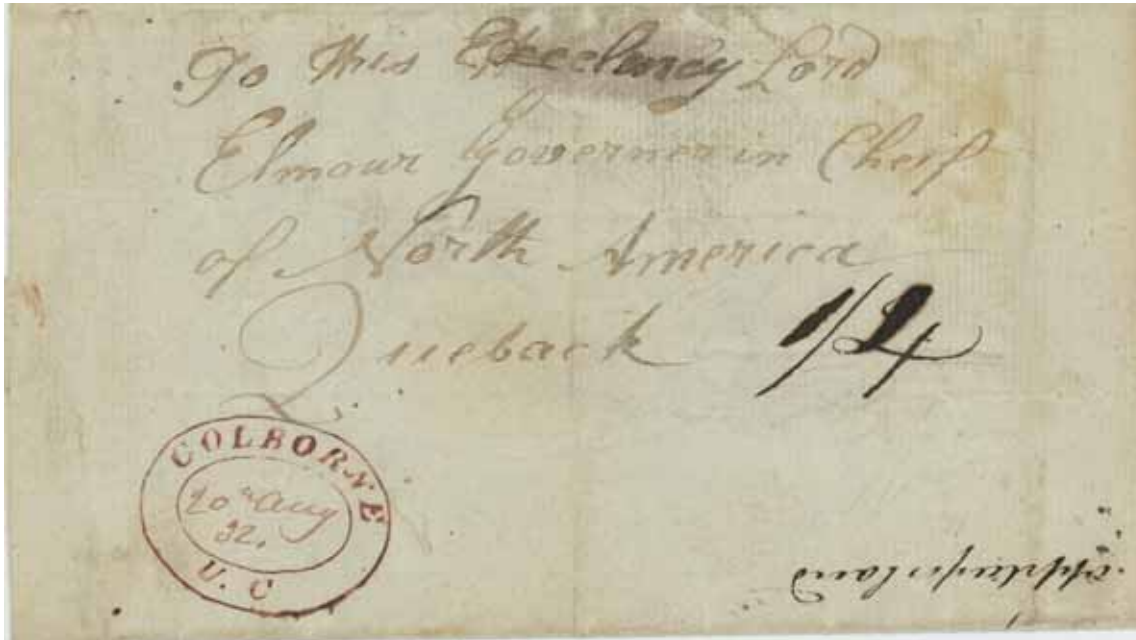 To This Excelency Lord
Elmour Governer in Cheif
of North America
Queback 1/4
COLBORNE
20th Aug
32.
U. C
applys land